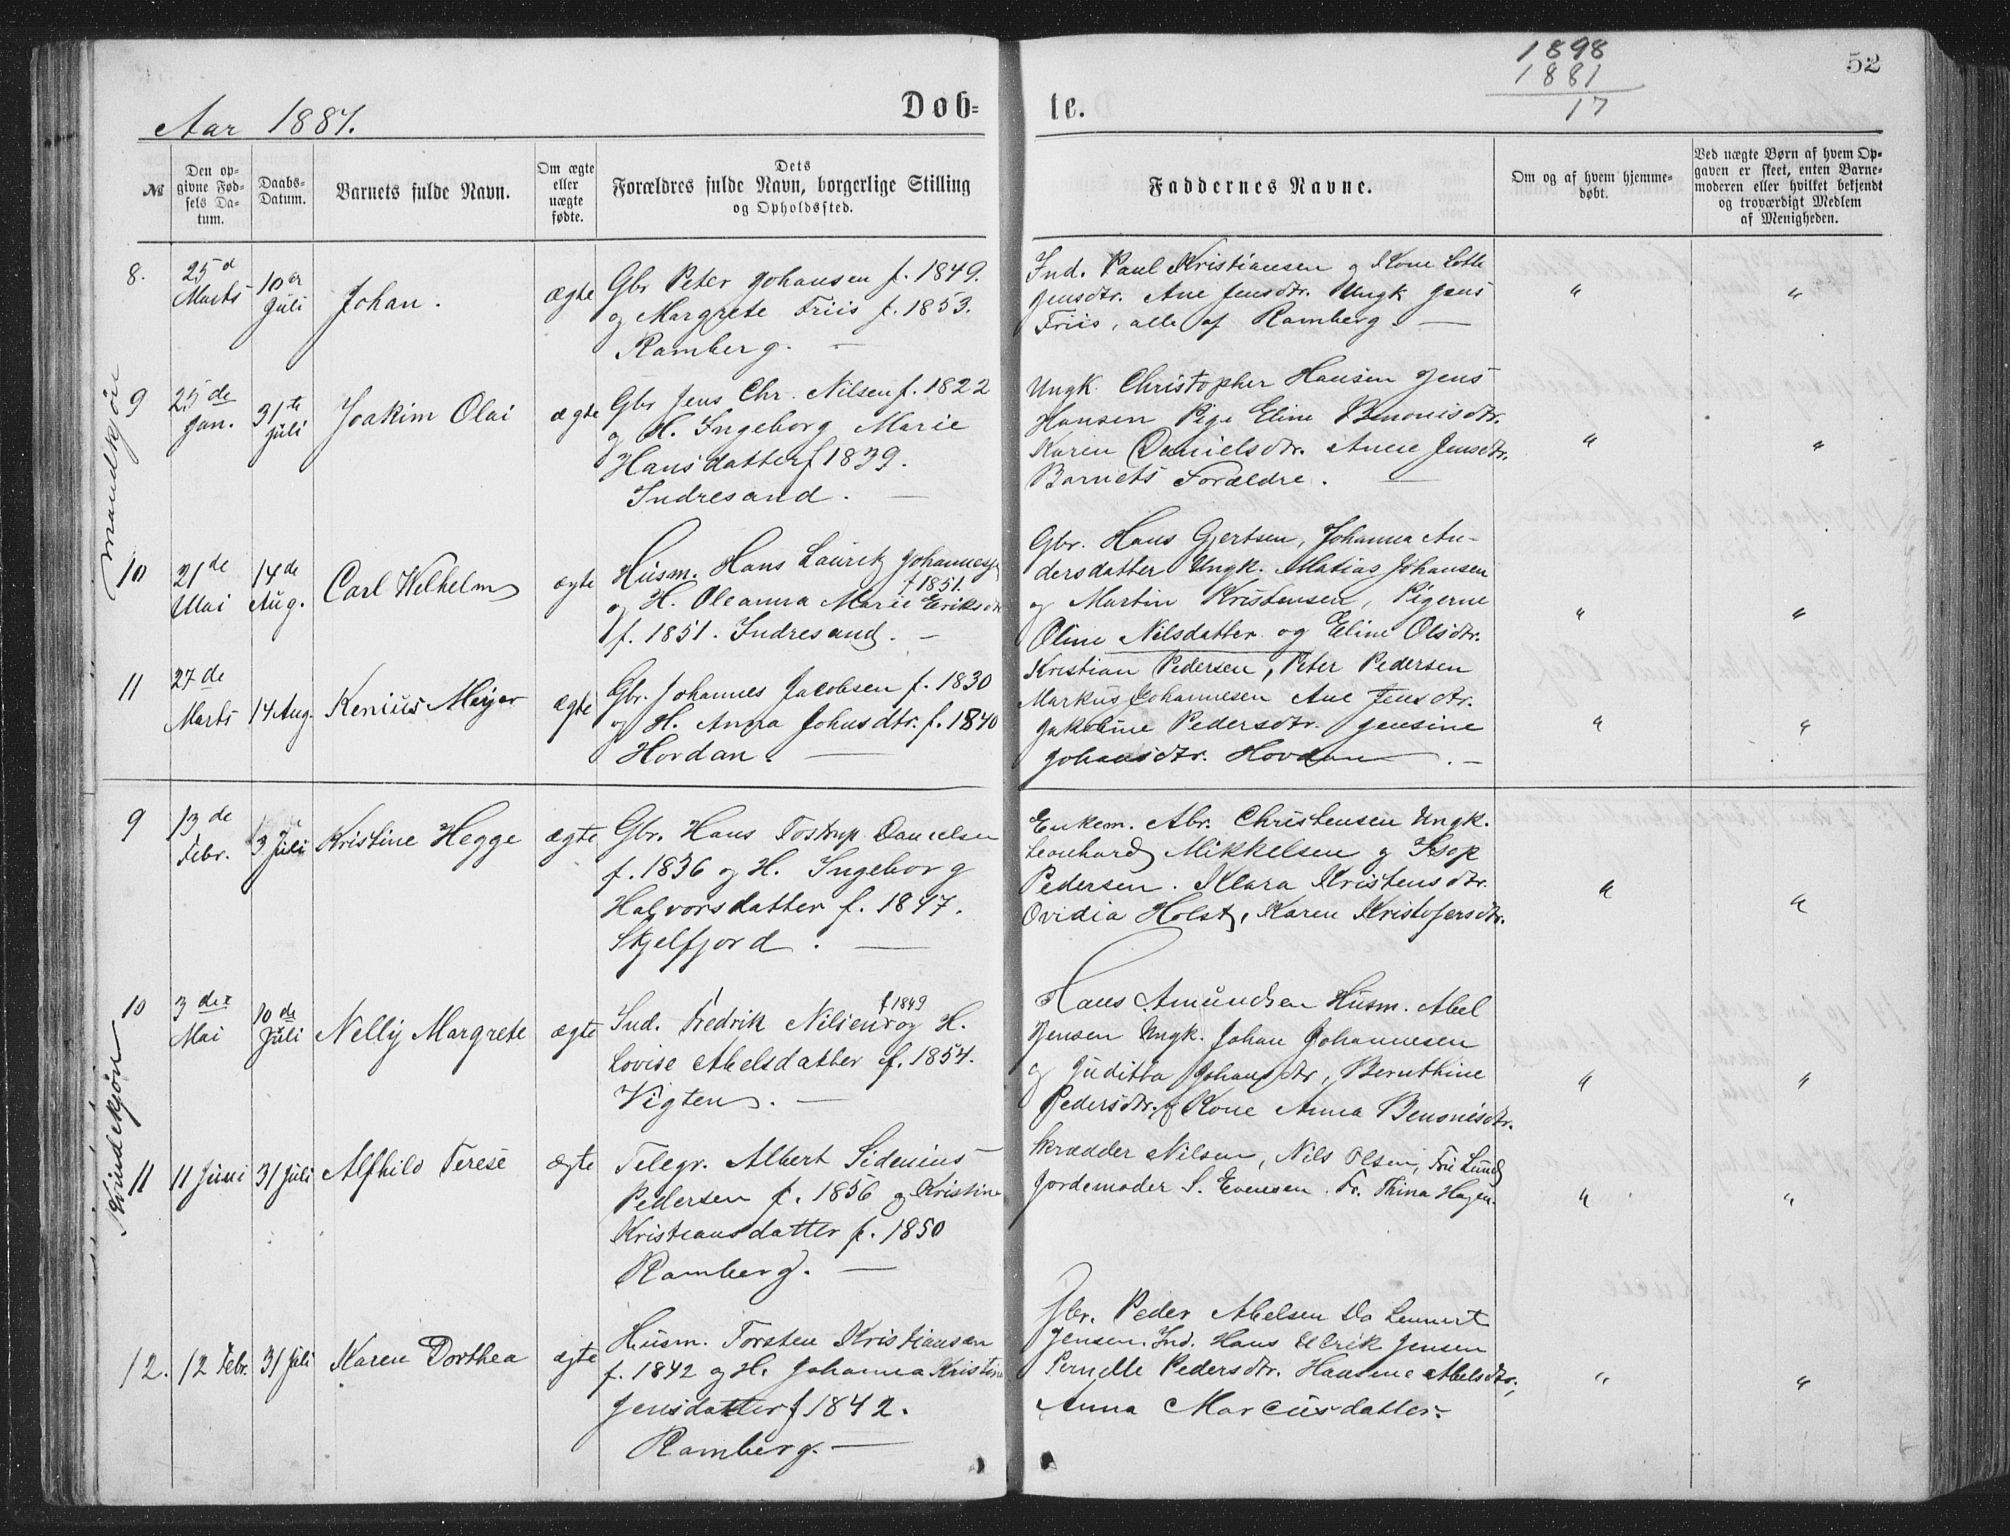 1898
1881
17
52
Aar 1881.
Døb-
te.
№
Den op-
givne Fød-
sels Da-
tum.
Daabs-
Datum.
Barnets fulde Navn.
Om ægte
eller
uægte
fødte.
Dets
Forældres fulde Navn, borgerlige Stilling
og Opholdssted.
Faddernes Navne.
Om og af hvem hjemme-
døbt.
Ved uægte Børn af hvem Op-
gaven er skeet, enten Barne-
moderen eller hvilket bekjendt
og troværdigt Medlem
af Menigheden.
Mandkjøn
8.
25d
Marts
10er
Juli
Johan.
ægte
Gbr Peter Johansen f. 1849.
og Margrete Friis f. 1853.
Ramberg. —
Ind. Paul Kristiansen og Kone Lotte
Jensdtr. Ane Jensdtr. Ungk Jens
Friis, alle af Ramberg. —
"
"
9
25de
Jan.
31te
Juli
Joakim Olai
ægte
Gbr Jens Chr. Nilsen f. 1822
og H. Ingeborg Marie
Hansdatter f 1839.
Indresand. —
Ungk. Christopher Hansen Jens
Hansen Pige Eline Benonisdtr.
Karen Danielsdtr. Anne Jensdtr.
Barnets Forældre. —
"
"
10
21de
Mai
14de
Aug.
Carl Welhelm
ægte
Husm. Hans Lauritz Johannes
f 1851.
og H. Oleanna Marie Eriksdtr
f. 1851. Indresand. —
Gbr. Hans Gjertsen, Johanna An-
dersdatter Ungk. Matias Johansen
og Martin Kristensen, Pigerne
Oline Nilsdatter og Eline Olsdtr.
"
"
11
27de
Marts
14 Aug.
Kenius Meyer
ægte
Gbr. Johannes Jacobsen f. 1830
og H. Anna Johnsdtr. f. 1840
Hovdan. —
Kristian Pedersen, Peter Pedersen
Markus Johannesen Ane Jensdtr.
Jakobine Pedersdtr. Jensine
Johansdtr. Hovdan —
"
"
Kvindekjøn
9
13de
Febr.
3 Juli
Kristine Hegge
ægte
Gbr. Hans Tostrup Danielsen
f. 1836 og H. Ingeborg
Halvorsdatter f. 1847.
Skjelfjord. —
Enkem. Abr. Christensen Ungk.
Leonhard Mikkelsen og Esop
Pedersen. Klara Kristensdtr.
Ovidia Holst, Karen Kristofersdtr.
"
"
10
3die
Mai
10de
Juli
Nelly Margrete
ægte
f 1849
Ind. Fredrik Nilsen og H.
Lovise Abelsdatter f. 1854.
Vigten. —
Hans Amundsen Husm. Abel
Jensen Ungk. Johan Johannesen
og Juditta Johansdtr, Bernthine
Pedersdtr. og Kone Anna Benonisdtr.
"
"
11
11 Juni
31 Juli
Alfhild Terese
ægte
Telegr. Albert Sidenius
Pedersen f. 1856 og Kristine
Kristiansdatter f. 1850
Ramberg. —
Skrædder Nilsen, Nils Olsen, Fru Lund
Jordemoder S. Evensen. Fr. Thina Hagen.
"
"
12.
12 Febr.
31 Juli
Karen Dorthea
ægte
Husm. Torsten Kristiansen
f. 1842 og H. Johanna Kristine
Jensdatter f 1842.
Ramberg. —
Gbr. Peder Abelsen Do Lennert
Jensen. Ind. Hans Elrik Jensen
Pernelle Pedersdtr. Hansine Abelsdtr,
Anna Marcusdatter.
"
"